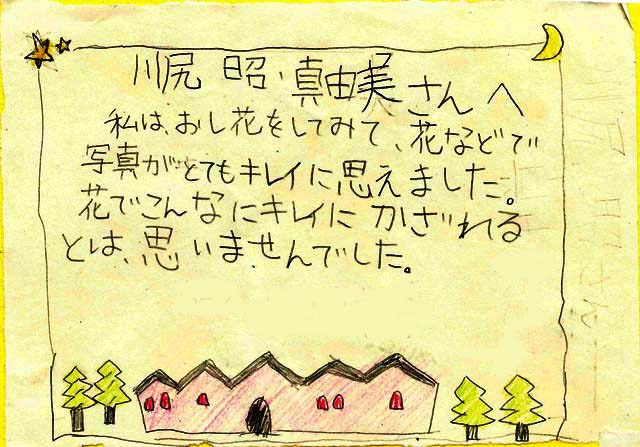 川尻 昭・真由美さんへ
私は、おし花をしてみて、花などで
写真がとてもキレイに思えました。
花でこんなにキレイにかざれる
とは、思いませんでした。